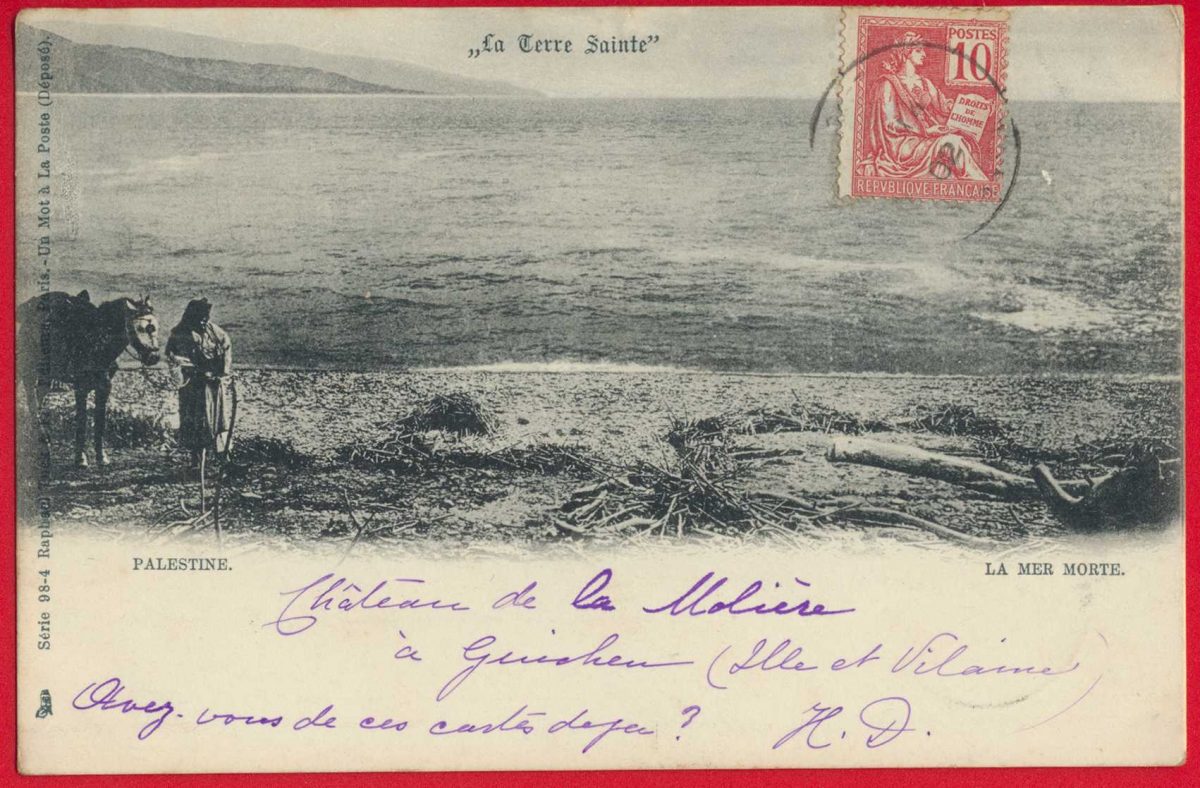 „La Terre Sainte"
POSTES
10
DROITS
DE
L'HOMME
REPVBLIQUE FRANÇAISE
02
Série 98-4 Raphael Paris. - Un Mot à La Poste (Déposé).
PALESTINE.
LA MER MORTE.
Château de la Molière
à Guichen (Ille et Vilaine)
Avez-vous de ces cartes deja ? H. D.